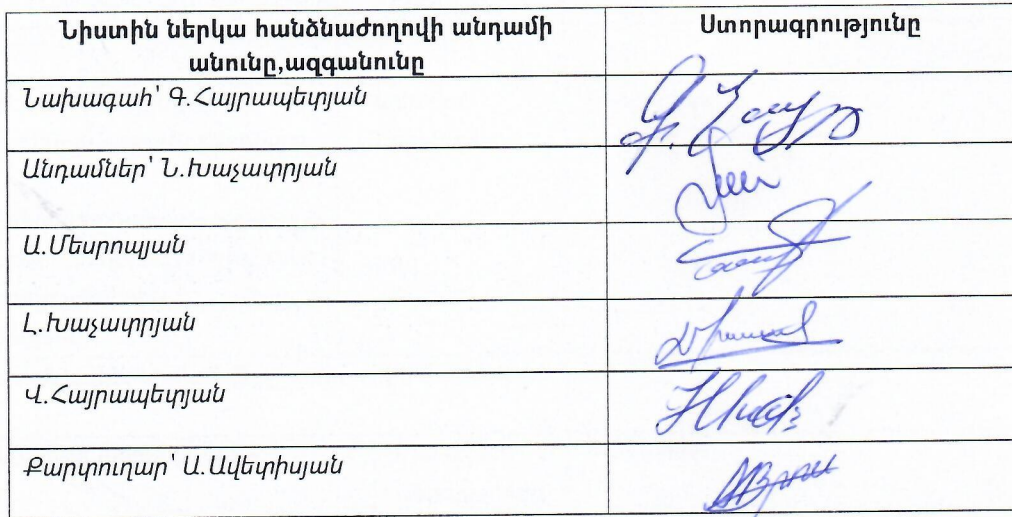 Նիստին ներկա հանձնաժողովի անդամի
անունը,ազգանունը
Ստորագրությունը
Նախագահ՝ Գ.Հայրապետյան
Անդամներ՝ Ն.Խաչատրյան
Ա.Մեսրոպյան
Լ.Խաչատրյան
Վ.Հայրապետյան
Քարտուղար՝ Ա.Ավետիսյան